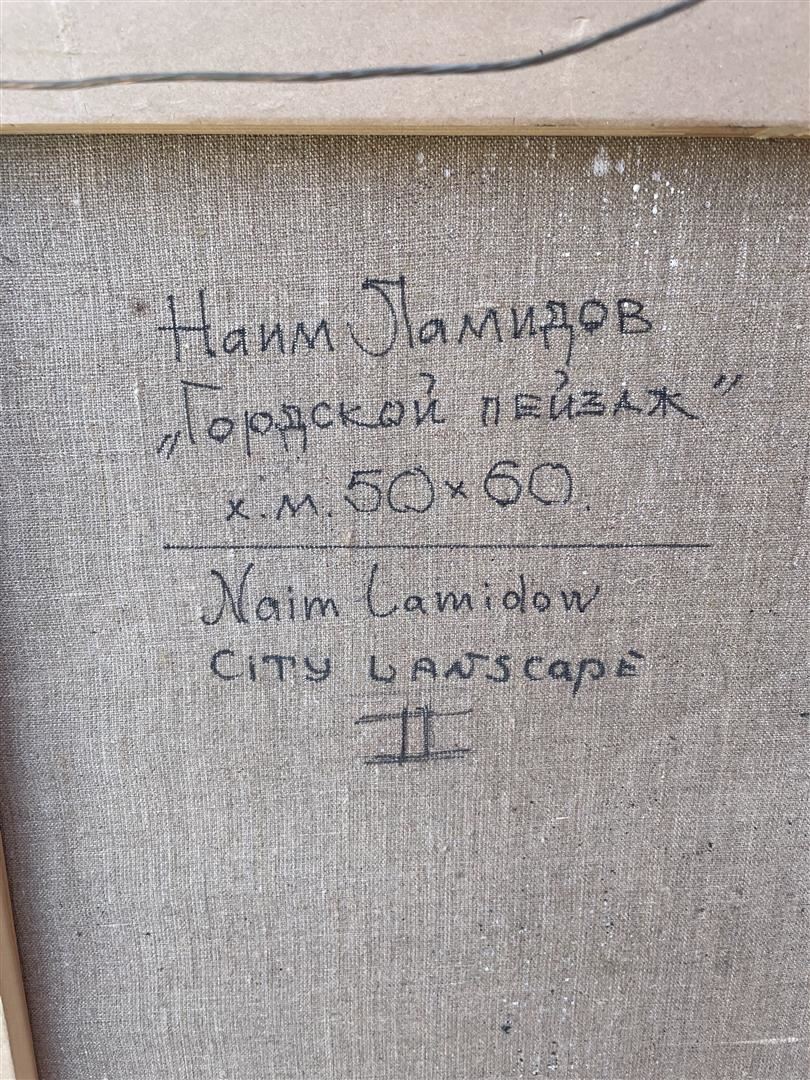 Наим Ламидов
„Гордской пейзаж”
х.м. 50×60.
Naim Lamidow
CITY LANSCAPE
II